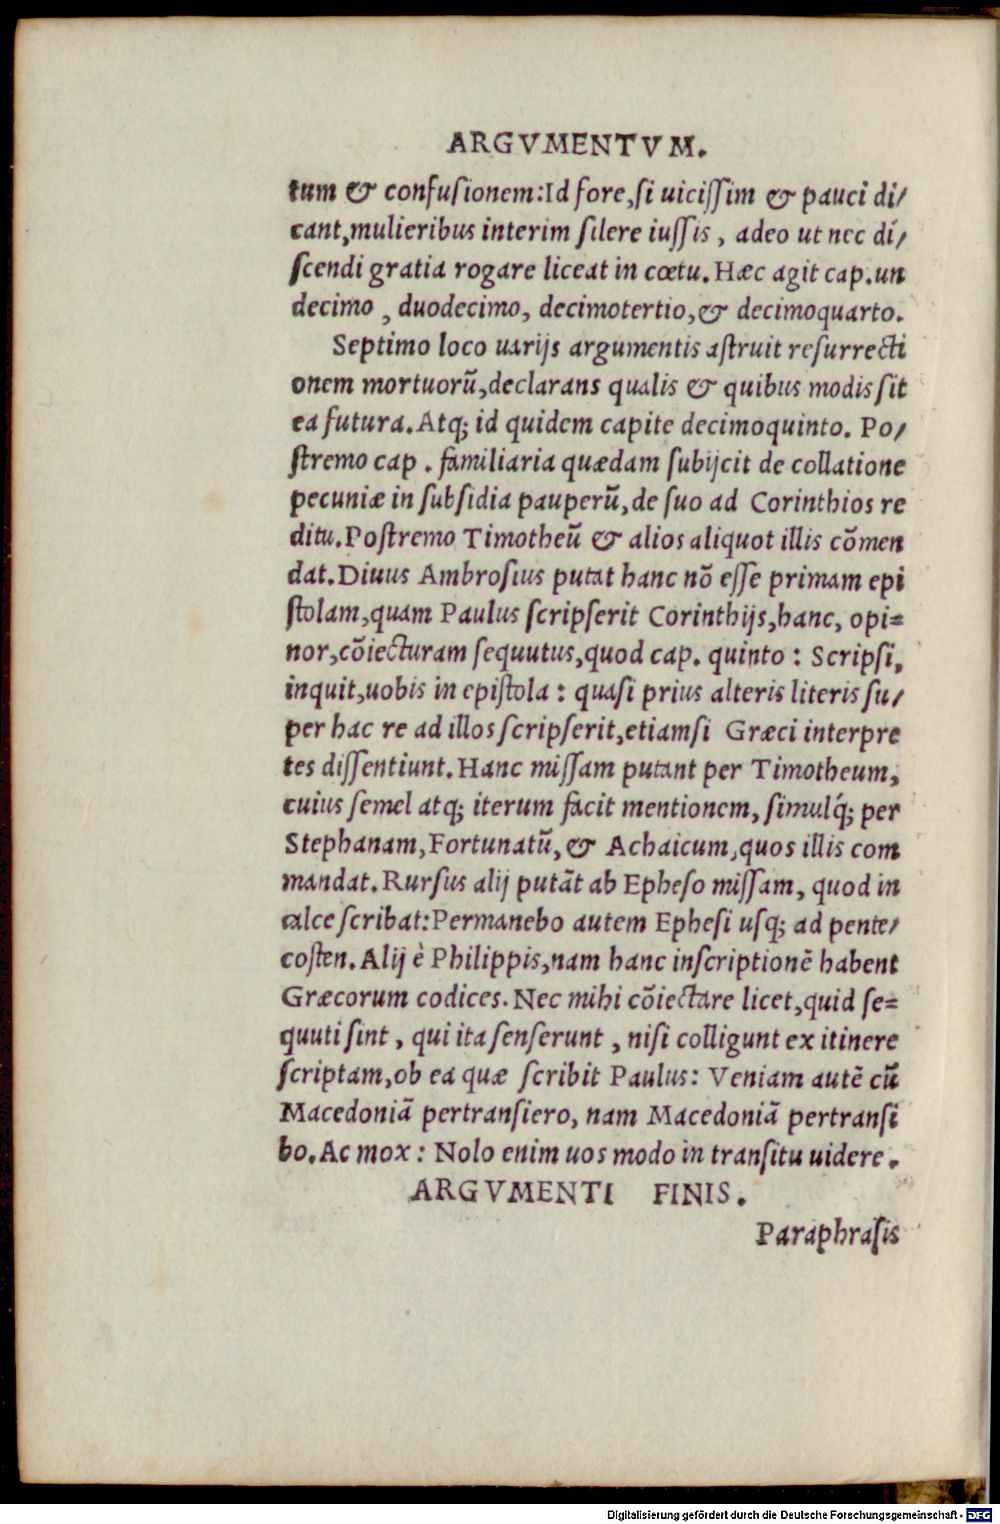 ARGVMENTVM.
tum & confuſionem:Id fore,ſi uiciſſim & pauci di/
cant,mulieribus interim ſilere iuſſis, adeo ut nec di/
ſcendi gratia rogare liceat in cœtu.Hæc agit cap.un
decimo, duodecimo, decimotertio,& decimoquarto.
Septimo loco uarijs argumentis aſtruit reſurrecti
onem mortuorũ,declarans qualis & quibus modis ſit
ea futura.Atq; id quidem capite decimoquinto. Po/
ſtremo cap. familiaria quædam ſubijcit de collatione
pecuniæ in ſubſidia pauperũ,de ſuo ad Corinthios re
ditu.Poſtremo Timotheũ & alios aliquot illis cõmen
dat.Diuus Ambroſius putat hanc nõ eſſe primam epi
ſtolam,quam Paulus ſcripſerit Corinthijs,hanc, opi=
nor,cõiecturam ſequutus,quod cap. quinto: Scripſi,
inquit,uobis in epiſtola: quaſi prius alteris literis ſu/
per hac re ad illos ſcripſerit,etiamſi Græci interpre
tes diſſentiunt.Hanc miſſam putant per Timotheum,
cuius ſemel atq; iterum facit mentionem, ſimulq́; per
Stephanam,Fortunatũ,& Achaicum,quos illis com
mandat.Rurſus alij putãt ab Epheſo miſſam, quod in
calce ſcribat:Permanebo autem Epheſi uſq; ad pente/
coſten.Alij è Philippis,nam hanc inſcriptionẽ habent
Græcorum codices.Nec mihi cõiectare licet,quid ſe=
quuti ſint, qui ita ſenſerunt, niſi colligunt ex itinere
ſcriptam,ob ea quæ ſcribit Paulus: Veniam autẽ cũ
Macedoniã pertranſiero, nam Macedoniã pertranſi
bo.Ac mox: Nolo enim uos modo in tranſitu uidere.
ARGVMENTI FINIS.
Paraphraſis
Digitalisierung gefördert durch die Deutsche Forschungsgemeinschaft - DFG